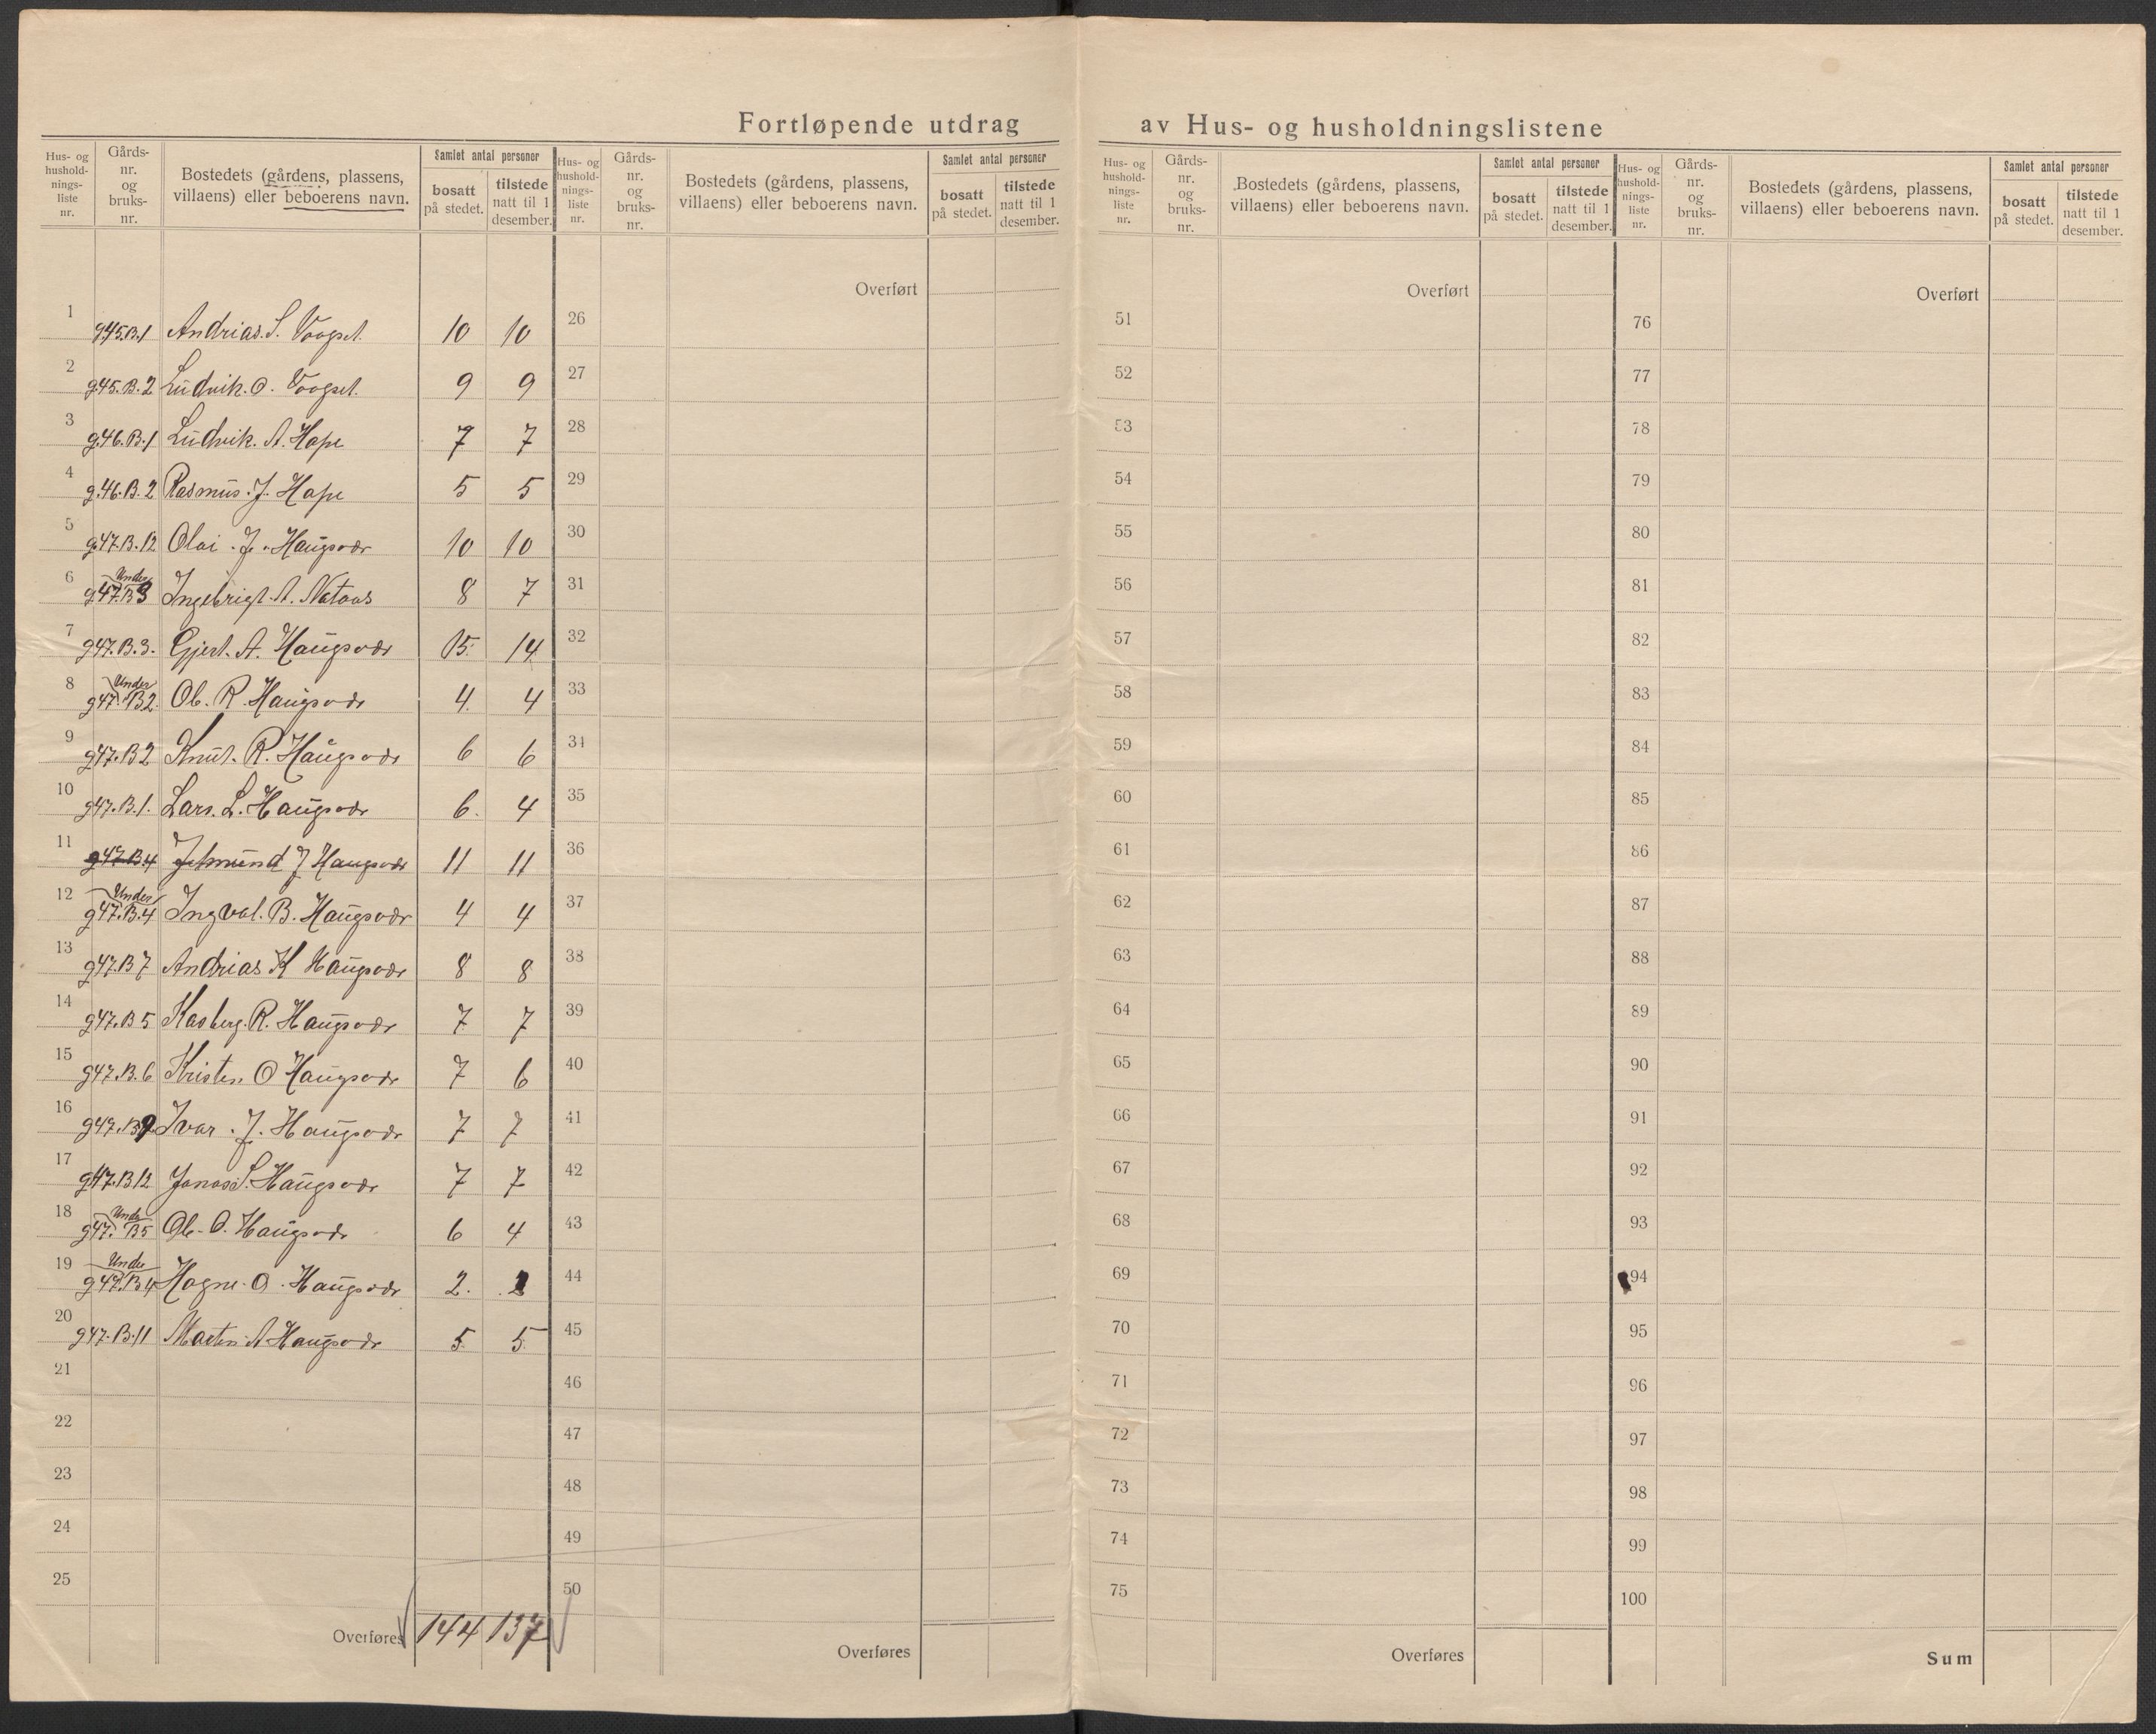 Fortløpende utdrag av Hus- og husholdningslistene
Hus- og hushold-nings-liste nr. Gårds-nr. og bruks-nr. Bostedets (gårdens, plassens, villaens) eller beboerens navn. Samlet antal personer bosatt på stedet. tilstede natt til 1 desember.
1 g45.B.1 Andrias. S. Vaagset. 10 10
2 g45.B.2 Ludvik. O. Vaagset. 9 9
3 g.46.B.1 Ludvik. A. Hope 7 7
4 g.46.B.2 Rasmus. J. Hope 5 5
5 g.47.B.12 Olai. J. Haugsvær 10 10
6 Under g47.B3 Ingebrigt. A. Nataas 8 7
7 g47.B.3. Gjert. A. Haugsvær 15. 14
8 Under g47. B2. Ol. R. Haugsvær 4. 4
9 g47.B2 Knut. R. Haugsvær 6 6
10 g47.B.1. Lars. L. Haugsvær 6. 4
11 g47.B4 Jetmund J Haugsvær 11 11
12 Under g47.B.4 Ingval. B. Haugsvær 4 4
13 g47.B7 Andrias K Haugsvær 8 8
14 g47.B5 Kasberg. R. Haugsvær 7 7
15 g47.B.6 Kristen O Haugsvær 7 6
16 g47.B9 Ivar. J. Haugsvær 7 7
17 g47.B12 Jonas S. Haugsvær 7 7
18 Under g47. B5 Ol. O. Haugsvær 6 4
19 Under g47.B4 Hogne. O. Haugsvær 2. 1
20 g47.B.11 Marten A Haugsvær 5. 5.
21
22
23
24
25
Overføres 144 137
Hus- og hushold-nings-liste nr. Gårds-nr. og bruks-nr. Bostedets (gårdens, plassens, villaens) eller beboerens navn. Samlet antal personer bosatt på stedet. tilstede natt til 1 desember.
Overført
26
27
28
29
30
31
32
33
34
35
36
37
38
39
40
41
42
43
44
45
46
47
48
49
50
Overføres
Hus- og hushold-nings-liste nr. Gårds-nr. og bruks-nr. Bostedets (gårdens, plassens, villaens) eller beboerens navn. Samlet antal personer bosatt på stedet. tilstede natt til 1 desember.
Overført
51
52
53
54
55
56
57
58
59
60
61
62
63
64
65
66
67
68
69
70
71
72
73
74
75
Overføres
Hus- og hushold-nings-liste nr. Gårds-nr. og bruks-nr. Bostedets (gårdens, plassens, villaens) eller beboerens navn. Samlet antal personer bosatt på stedet. tilstede natt til 1 desember.
Overført
76
77
78
79
80
81
82
83
84
85
86
87
88
89
90
91
92
93
94
95
96
97
98
99
100
Sum